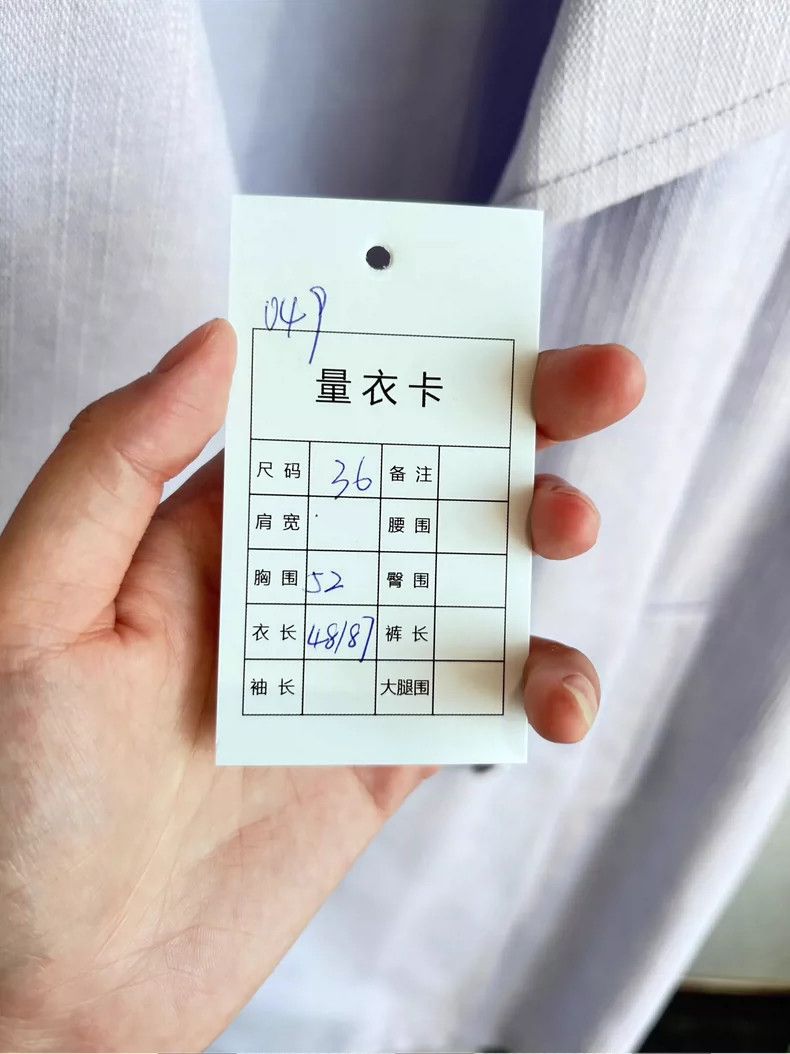 049
量衣卡
尺码 36 备注
肩宽 腰围
胸围 52 臀围
衣长 48/87 裤长
袖长 大腿围